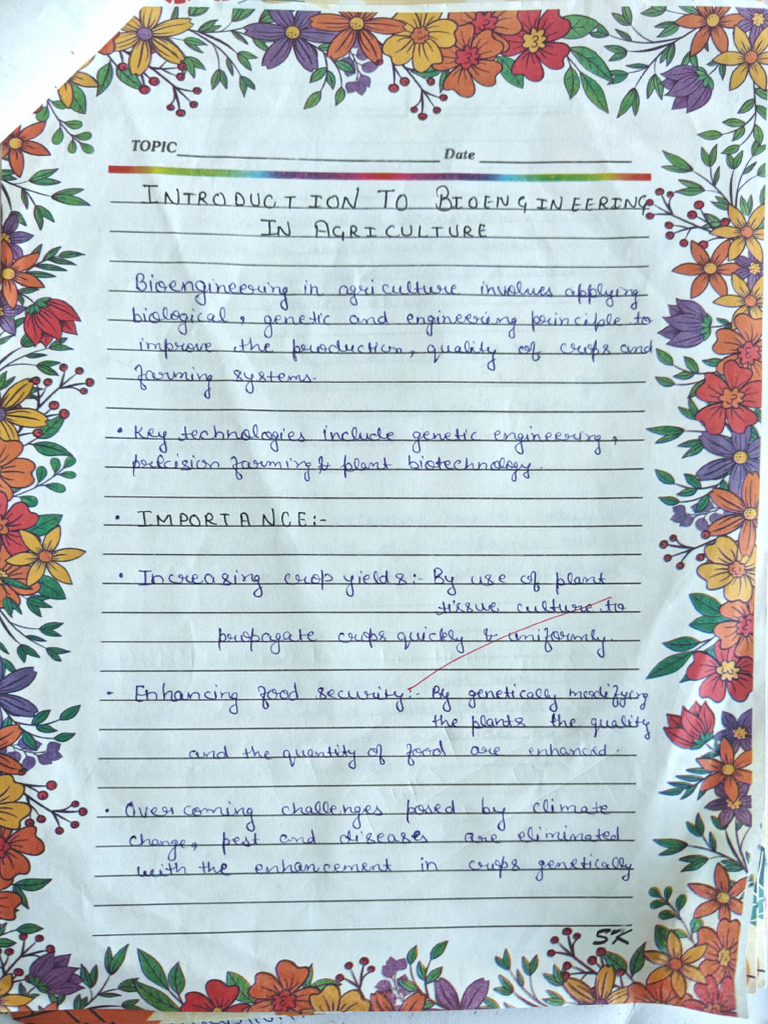 TOPIC Date
INTRODUCTION TO BIOENGINEERING
IN AGRICULTURE
Bioengineering in agriculture involves applying
biological, genetic and engineering principle to
improve the production, quality of crops and
farming systems.
• Key technologies include genetic engineering,
precision farming & plant biotechnology.
• IMPORTANCE:-
• Increasing crop yields:- By use of plant
tissue culture to
propagate crops quickly & uniformly.
- Enhancing food security:- By genetically modifying
the plants the quality
and the quantity of food are enhanced.
• Over coming challenges posed by climate
change, pest and diseases are eliminated
with the enhancement in crops genetically
SK